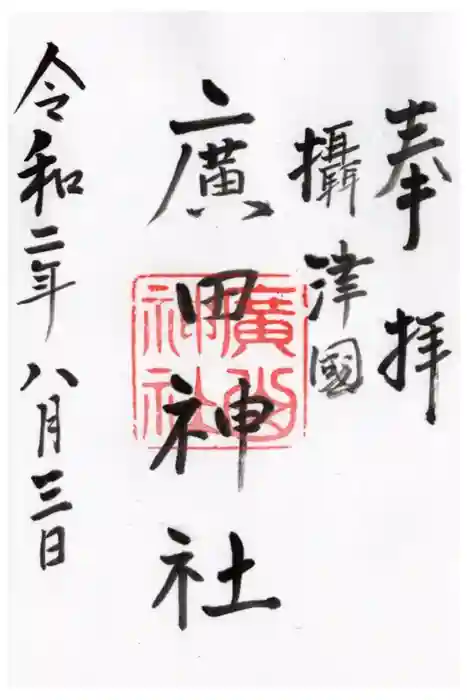 奉拝
攝津國
廣田神社
廣田神社
令和二年八月三日